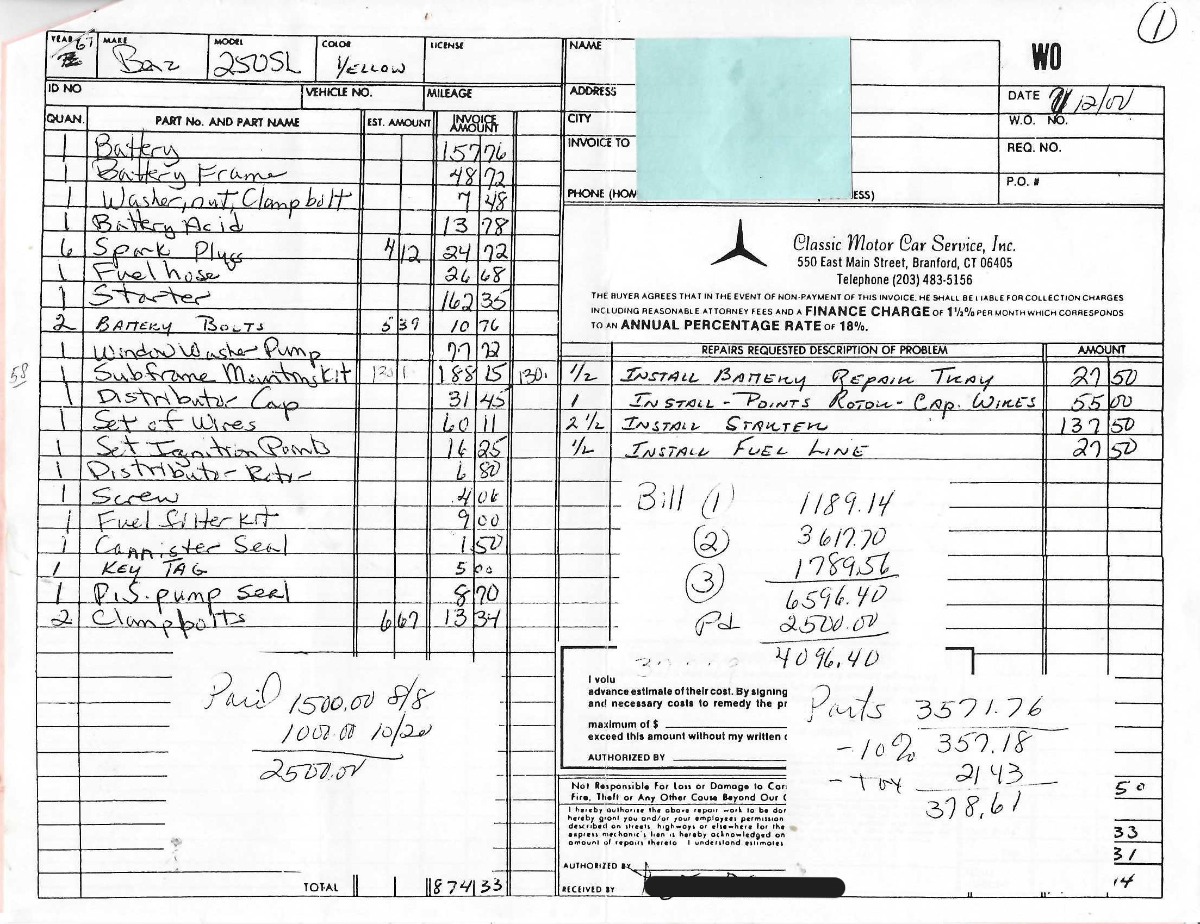 1
YEAR 67 MAKE Benz MODEL 250SL COLOR YELLOW LICENSE
ID NO VEHICLE NO. MILEAGE
QUAN. PART No. AND PART NAME EST. AMOUNT INVOICE AMOUNT
1 Battery 157 76
1 Battery Frame 48 72
1 Washer, nut, Clamp bolt 7 48
1 Battery Acid 13 78
6 Spark Plugs 4 12 24 72
1 Fuel hose 26 68
1 Starter 162 35
2 BATTERY BOLTS 5 39 10 76
1 Window Washer Pump 77 72
58 1 Subframe Mounting Kit 188 15 130.
1 Distributor Cap 31 45
1 Set of Wires 60 11
1 Set Ignition Points 16 25
1 Distributor Rotor 6 80
1 Screw 4 06
1 Fuel filter kit 9 00
1 Cannister Seal 1 50
1 KEY TAG 5 00
1 P.S. pump seal 8 70
2 Clamp bolts 6 67 13 34
Paid 1500.00 8/8
1000.00 10/20
2500.00
TOTAL 874 33
NAME
ADDRESS
CITY
INVOICE TO
PHONE (HOM ESS)
WO
DATE 12/01
W.O. NO.
REQ. NO.
P.O. #
Classic Motor Car Service, Inc.
550 East Main Street, Branford, CT 06405
Telephone (203) 483-5156
THE BUYER AGREES THAT IN THE EVENT OF NON-PAYMENT OF THIS INVOICE, HE SHALL BE LIABLE FOR COLLECTION CHARGES
INCLUDING REASONABLE ATTORNEY FEES AND A FINANCE CHARGE OF 1½% PER MONTH WHICH CORRESPONDS
TO AN ANNUAL PERCENTAGE RATE OF 18%.
REPAIRS REQUESTED DESCRIPTION OF PROBLEM AMOUNT
1/2 INSTALL BATTERY REPAIR TRAY 27 50
1 INSTALL - POINTS ROTOR - CAP. WIRES 55 00
2 1/2 INSTALL STARTER 137 50
1/2 INSTALL FUEL LINE 27 50
Bill (1) 1189.14
(2) 3617.70
(3) 1789.56
6596.40
Pd 2500.00
4096.40
I volu
advance estimate of their cost. By signing
and necessary costs to remedy the pr
maximum of $
exceed this amount without my written c
AUTHORIZED BY
Parts 3571.76
-10% 357.18
-Tax 2143
378.61
50
33
31
14
Not Responsible For Loss or Damage to Car
Fire, Theft or Any Other Cause Beyond Our C
I hereby authorize the above repair work to be dor
hereby grant you and/or your employees permission
described on streets, highways or elsewhere for the
express mechanic's lien is hereby acknowledged on
amount of repairs thereto. I understand estimates
AUTHORIZED BY
RECEIVED BY